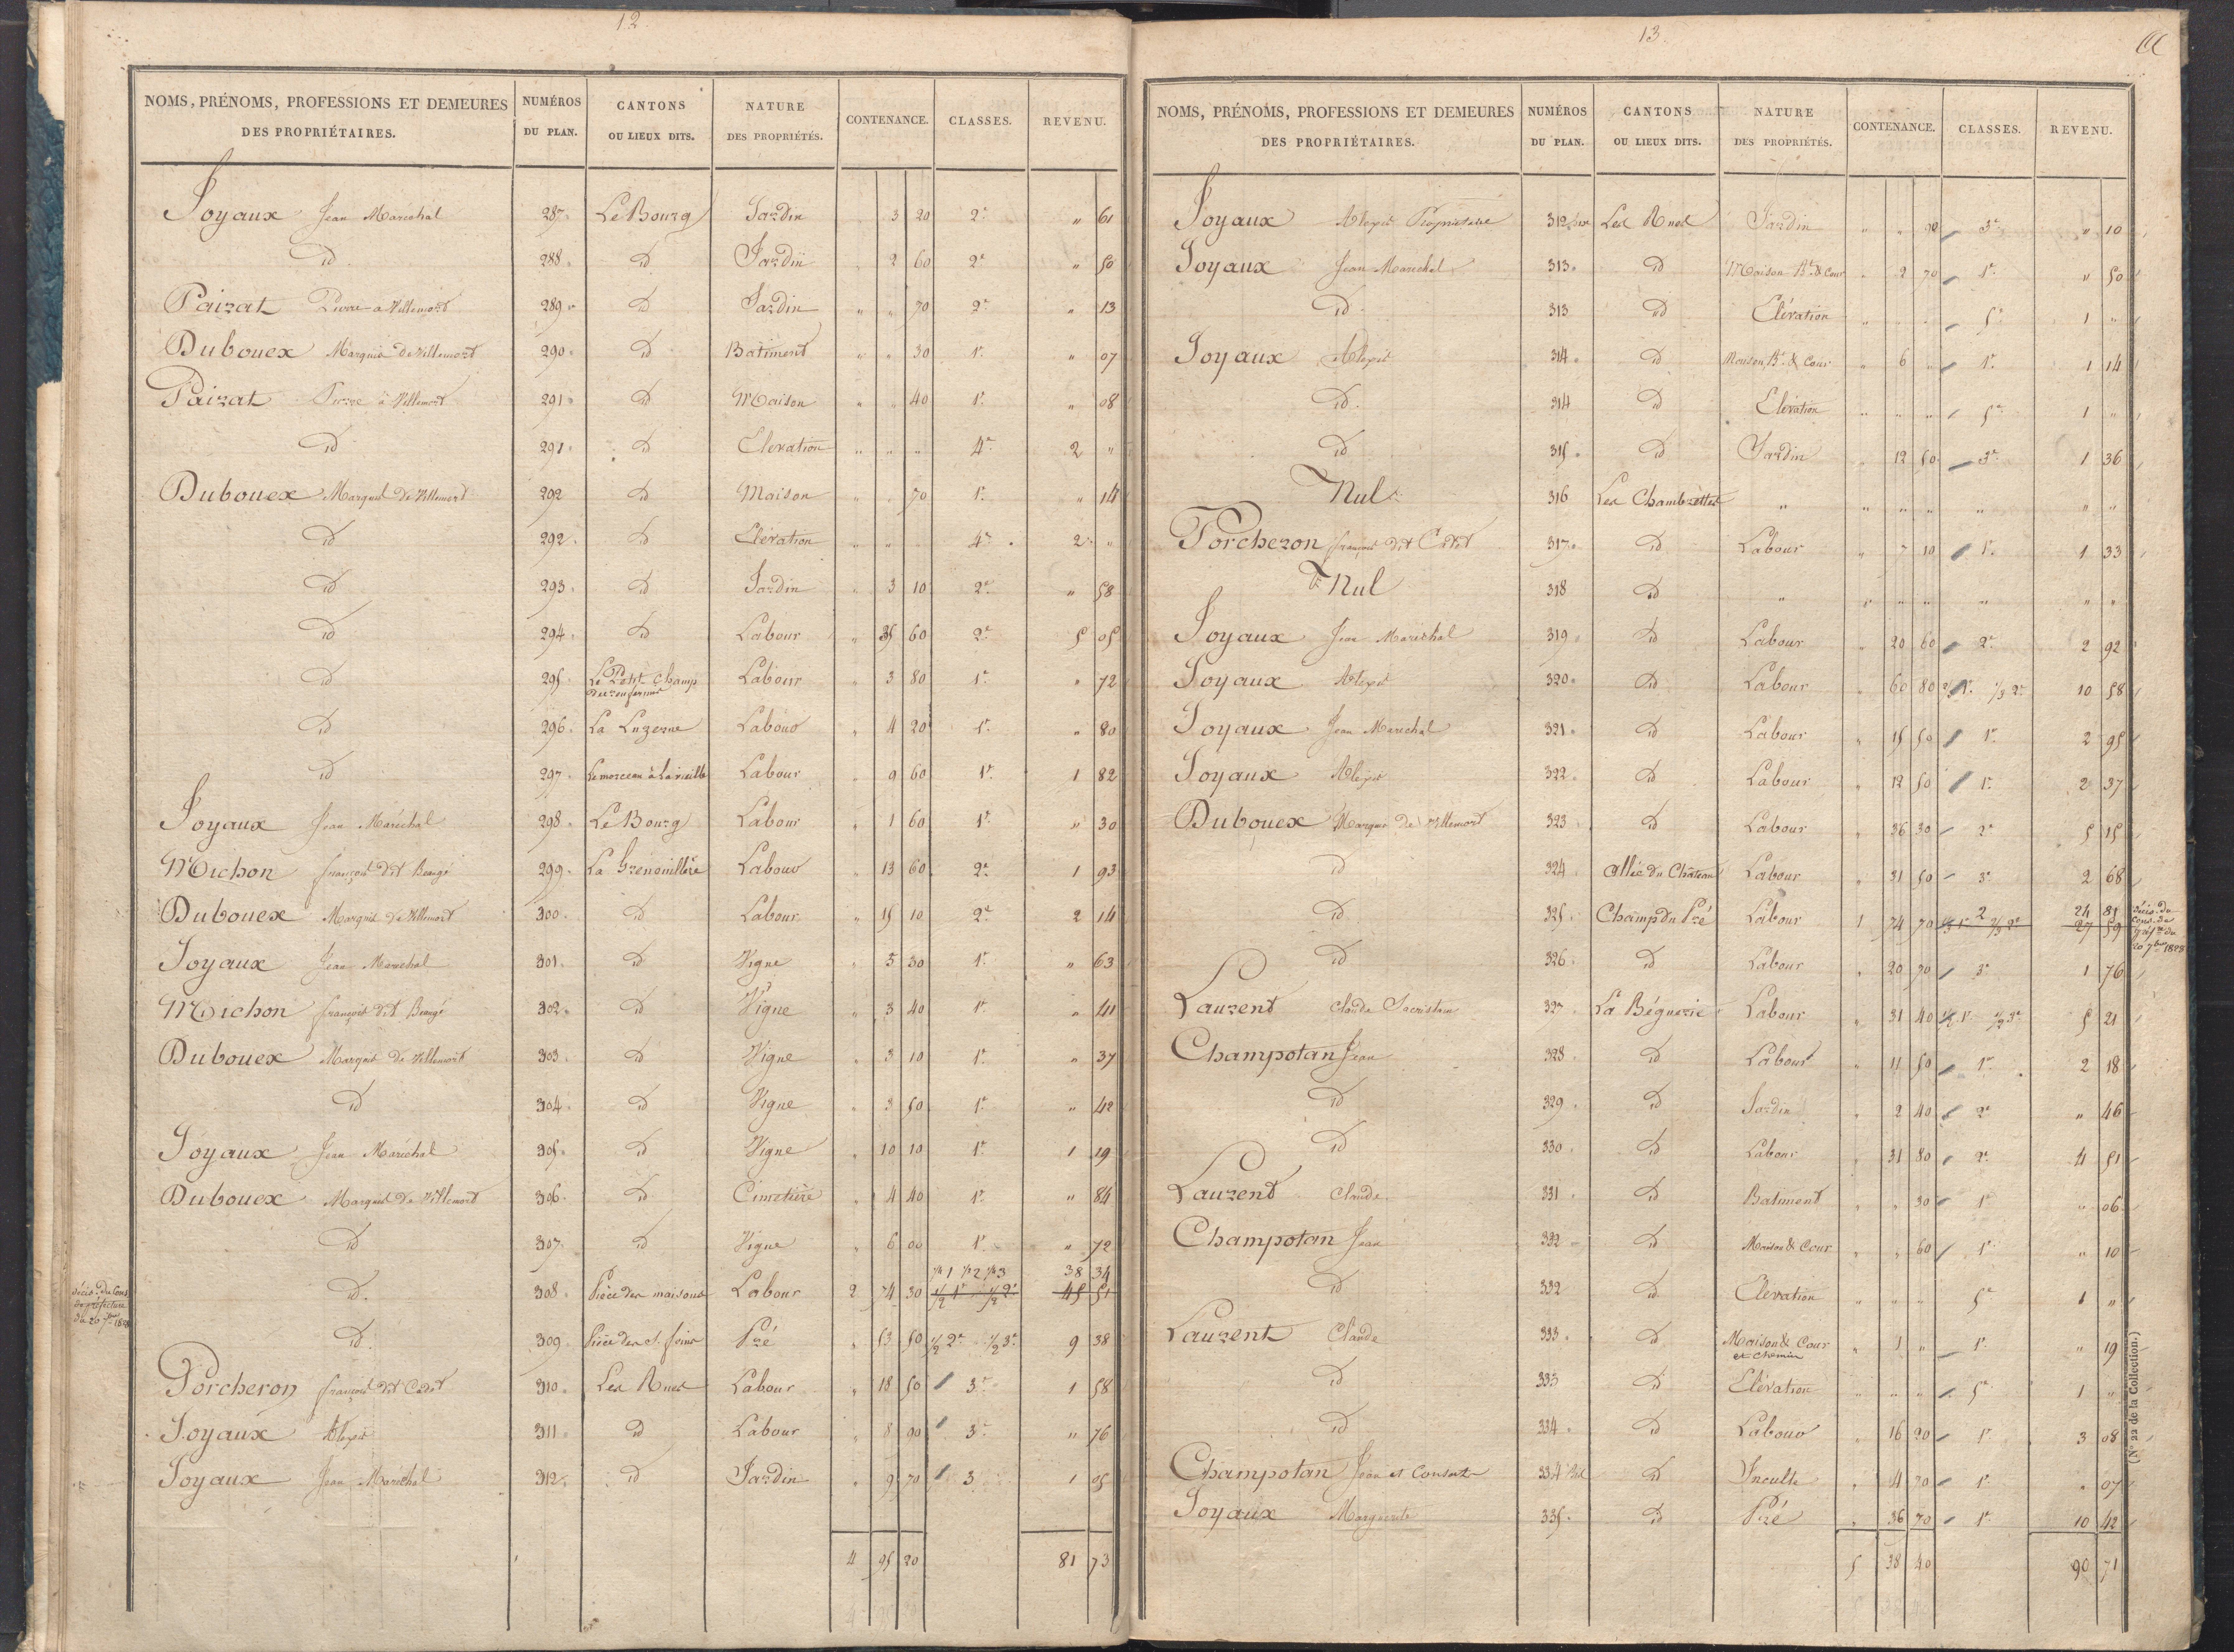 12
NOMS, PRÉNOMS, PROFESSIONS ET DEMEURES DES PROPRIÉTAIRES. NUMÉROS DU PLAN. CANTONS OU LIEUX DITS. NATURE DES PROPRIÉTÉS. CONTENANCE. CLASSES. REVENU.
Joyaux Jean Maréchal 287 Le Bourg Jardin 3 20 2e " 61
id 288 id Jardin 2 60 2e " 50
Paizat Pierre a Villemort 289 id Jardin " " 70 2e " 13
Dubouex Marquis de Villemort 290 id Batiment " " 30 1e " 07
Paizat Pierre à Villemort 291 id Maison " " 40 1e " 08
id 291 id Elevation " " " 4e 2 "
Dubouex Marquis de Villemort 292 id Maison " " 70 1e " 14
id 292 id Elévation " " 4e 2 "
id 293 id Jardin " 3 10 2e " 58
id 294 id Labour " 35 60 2e 5 05
id 295 Le Petit Champ Labour " 3 80 1e " 72
id 296 La Luzerne Labour " 4 20 1e " 80
id 297 Le morceau à Labour " 9 60 1e 1 82
Joyaux Jean Maréchal 298 Le Bourg Labour " 1 60 1e " 30
Michon françois dit Beaugé 299 La Grenouillère Labour " 13 60 2e 1 93
Dubouex Marquis de Villemort 300 id Labour " 15 10 2e 2 14
Joyaux Jean Maréchal 301 id Vigne " 5 30 1e " 63
Michon françois dit Beaugé 302 id Vigne " 3 40 1e " 41
Dubouex Marquis de Villemort 303 id Vigne " 3 10 1e " 37
id 304 id Vigne " 3 50 1e " 42
Joyaux Jean Maréchal 305 id Vigne " 10 10 1e 1 19
Dubouex Marquis de Villemort 306 id Cimetière " 4 40 1e " 84
id 307 id Vigne " 6 00 1e " 72
1/4 1 1/2 2 1/4 3 38 34
id 308 Pièce des maisons Labour 2 74 30 1/2 1e 1/2 2e 45 51
décis. du Cons.
de préfecture
du 20 7bre 1828
id 309 Pièce des Pré " 53 50 1/2 2e 1/2 3e 9 38
Porcheron françois dit Cadet 310 Les Rues Labour " 18 50 3e 1 58
Joyaux Alexis 311 id Labour " 8 90 3e " 76
Joyaux Jean Maréchal 312 id Jardin " 9 70 3 1 05
4 95 20 81 73
13
NOMS, PRÉNOMS, PROFESSIONS ET DEMEURES DES PROPRIÉTAIRES. NUMÉROS DU PLAN. CANTONS OU LIEUX DITS. NATURE DES PROPRIÉTÉS. CONTENANCE. CLASSES. REVENU.
Joyaux Alexis Propriétaire 312 bis Les Rues Jardin " " 90 3e " 10
Joyaux Jean Maréchal 313 id Maison Bt & Cour " 2 70 1e " 50
id 313 id Elévation " " " 5e 1 "
Joyaux Alexis 314 id Maison, Bt & Cour " 6 " 1e 1 14
id 314 id Elévation " " " 5e 1 "
id 315 id Jardin " 12 50 3e 1 36
Nul 316 Les Chambrettes " " " " " " "
Porcheron françois dit Cadet 317 id Labour " 7 10 1e 1 33
Nul 318 id " " " " " " "
Joyaux Jean Maréchal 319 id Labour " 20 60 2e 2 92
Joyaux Alexis 320 id Labour " 60 80 2/3 1e 1/3 2e 10 58
Joyaux Jean Maréchal 321 id Labour " 15 50 1e 2 95
Joyaux Alexis 322 id Labour " 12 50 1e 2 37
Dubouex Marquis de Villemort 323 id Labour " 36 30 2e 5 15
id 324 allée du Château Labour " 31 50 3e 2 68
2 24 81
id 325 Champ du Pré Labour 1 74 70 1/3 1e 2/3 2e 27 59
décis. du
cons. de
préfre du
20 7bre 1828
id 326 id Labour " 20 70 3e 1 76
Laurent Claude Sacristain 327 La Béguerie Labour " 31 40 1/2 1e 1/2 2e 5 21
Champotan Jean 328 id Labour " 11 50 1e 2 18
id 329 id Jardin " 2 40 2e " 46
id 330 id Labour " 31 80 2e 4 51
Laurent Claude 331 id Batiment " " 30 1e " 06
Champotan Jean 332 id Maison & Cour " " 60 1e " 10
id 332 id Elevation " " " 5e 1 "
Laurent Claude 333 id Maison & Cour et chemin " 1 " 1e " 19
id 333 id Elévation " " " 5e 1 "
id 334 id Labour " 16 20 1e 3 08
Champotan Jean et Consorts 334 bis id Inculte " 4 20 1e " 07
Joyaux Marguerite 335 id Pré " 36 70 1e 10 42
5 38 40 90 71
(N° 22 de la Collection.)